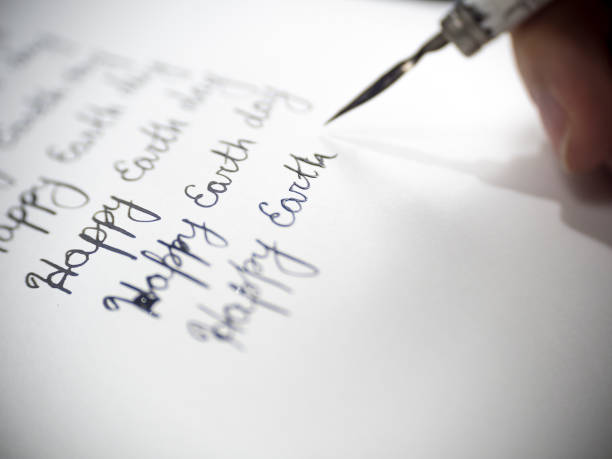 Earth day
Happy Earth day
Happy Earth day
Happy Earth day
Happy Earth